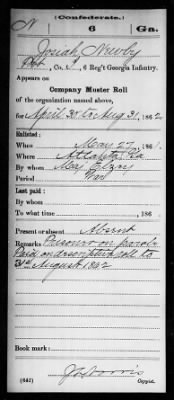 (Confederate.)
N 6 Ga.
Josiah Newby
Pvt, Co. , 6 Reg't Georgia Infantry.
Appears on
Company Muster Roll
of the organization named above,
for April 30 to Aug 31, 1862
Enlisted:
When May 27, 186
Where Atlanta, Ga
By whom Maj
Period War
Last paid:
By whom
To what time , 186
Present or absent Absent
Remarks Prisoner on parole
Paid on descriptive roll to
31st August 1862
Book mark:
(642) Copyist.